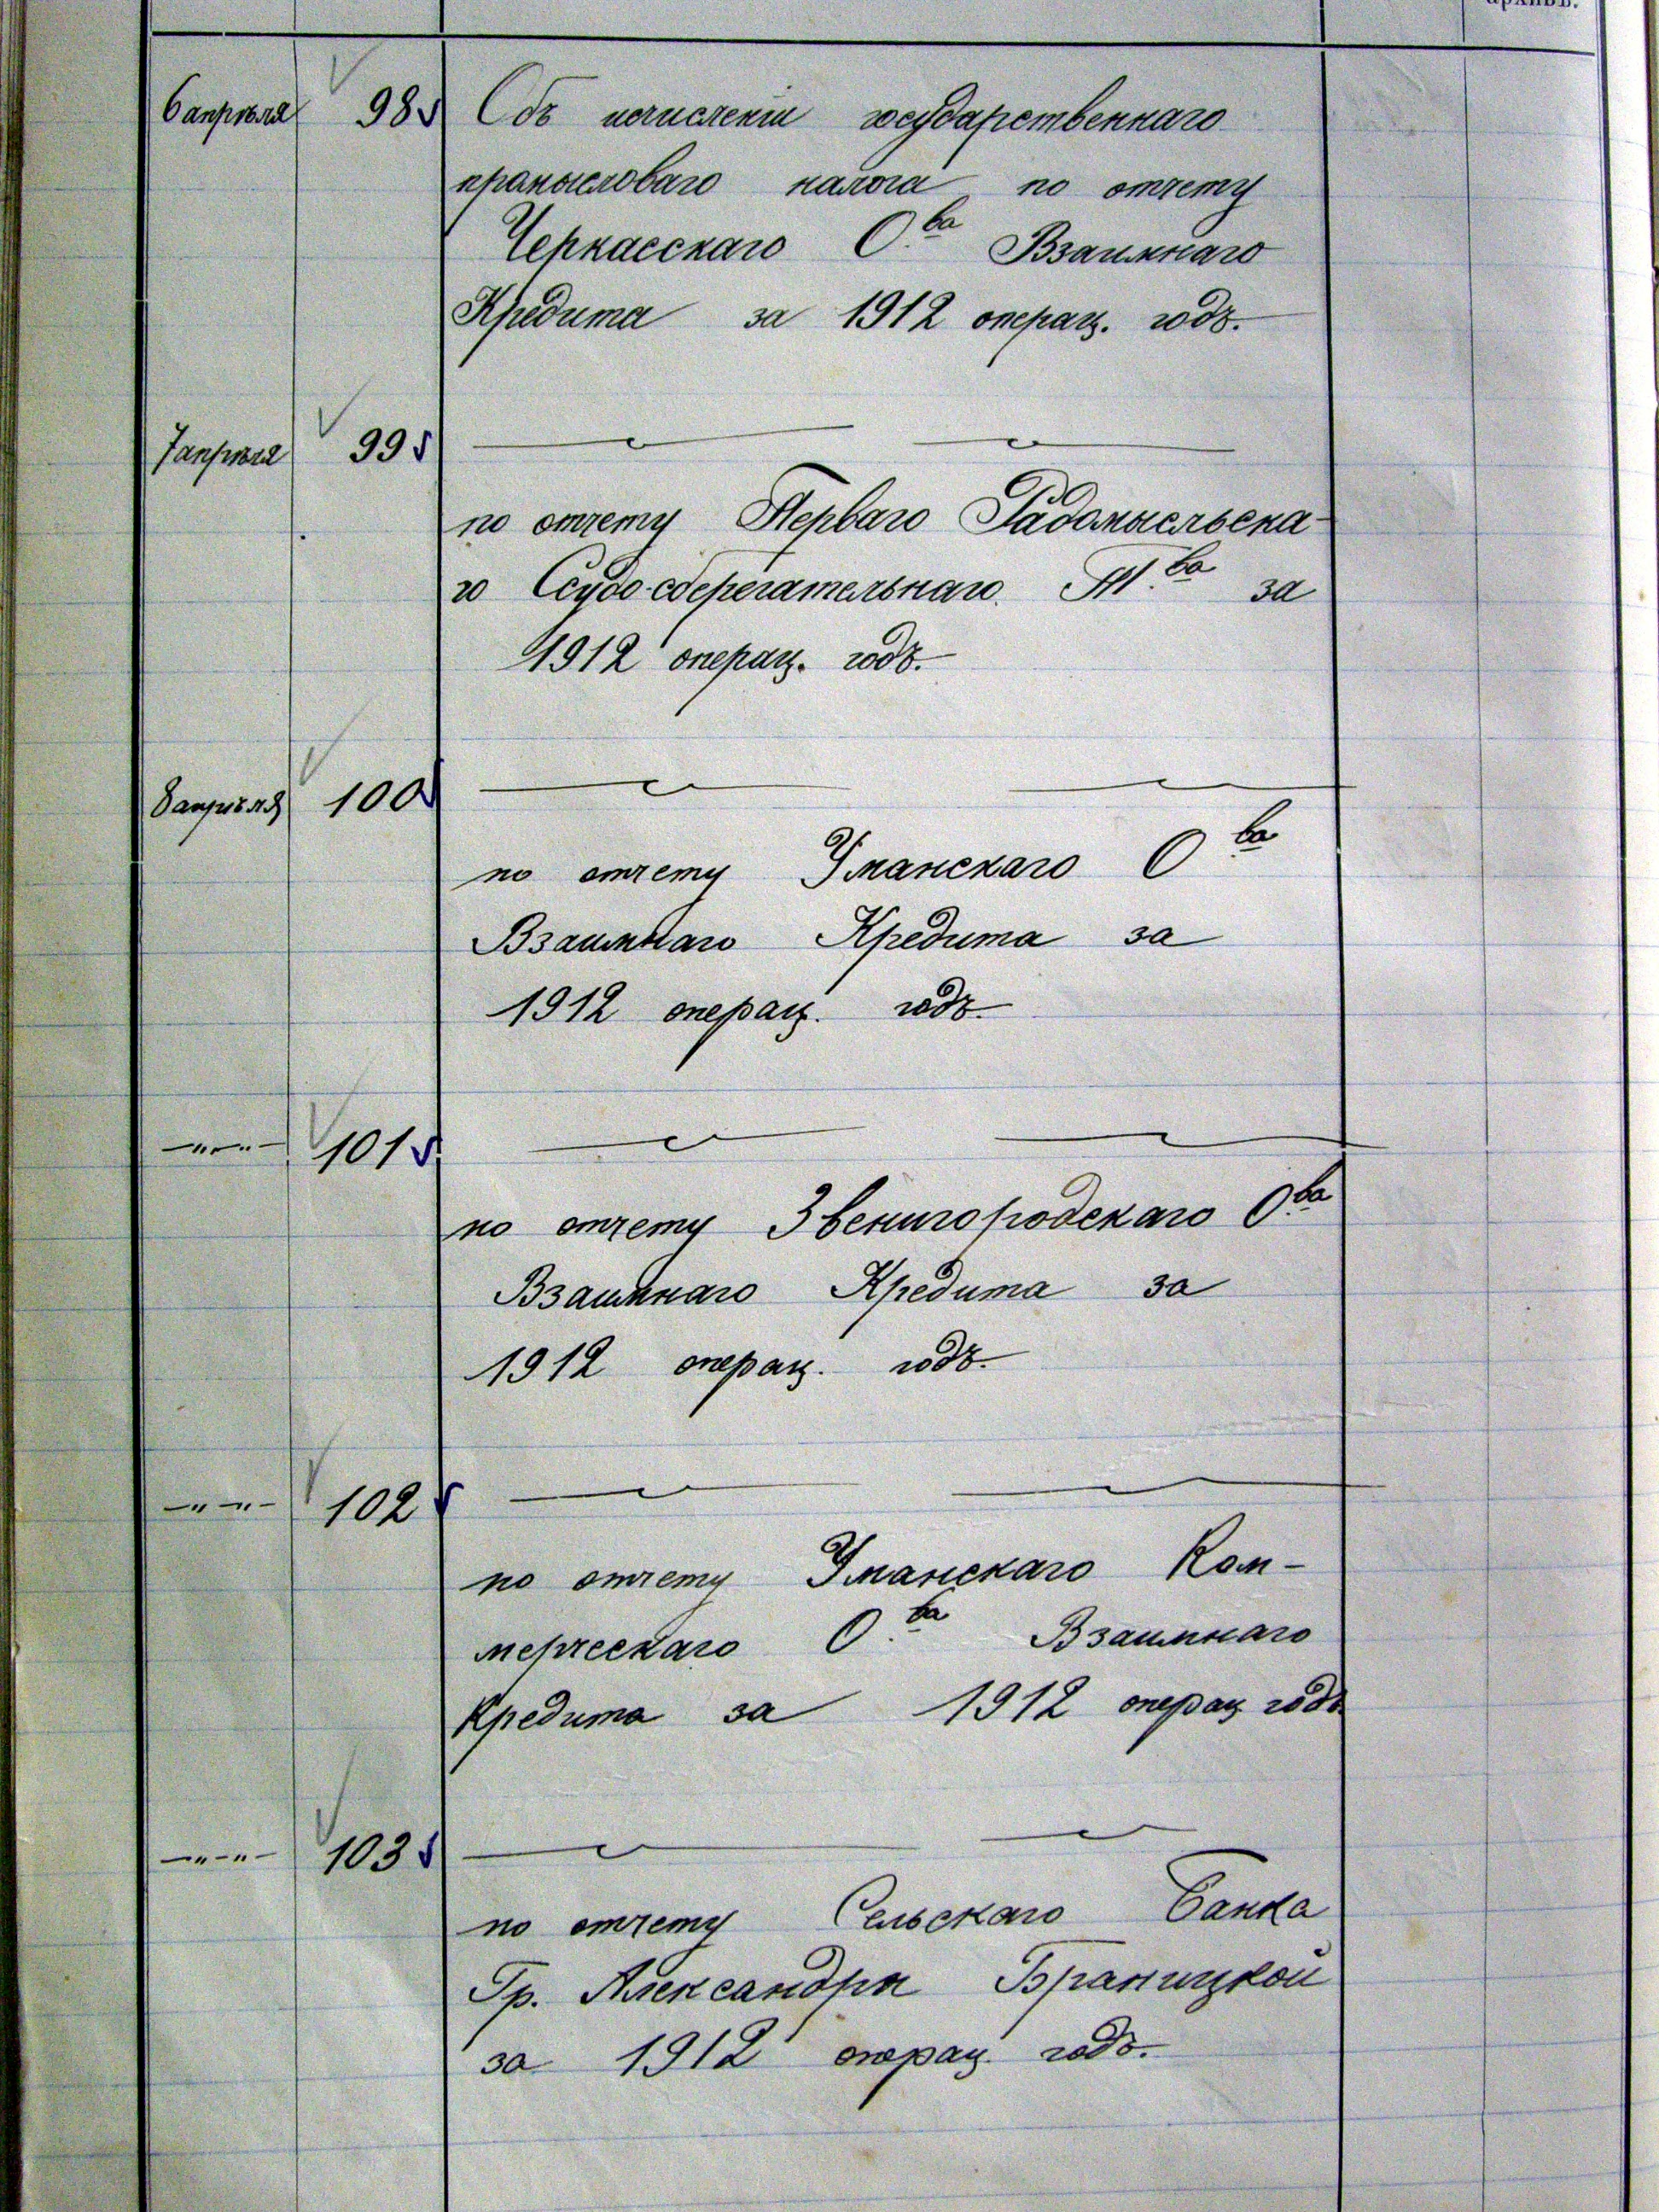 архивъ.
6 апрѣля 98 Объ исчисленіи государственнаго
промысловаго налога по отчету
Черкасскаго О.ва Взаимнаго
Кредита за 1912 операц. годъ.
7 апрѣля 99
по отчету Перваго Радомысльска-
го Ссудо-сберегательнаго Т.ва за
1912 операц. годъ.
8 апрѣля 100
по отчету Уманскаго О.ва
Взаимнаго Кредита за
1912 операц. годъ.
—"—"— 101
по отчету Звенигородскаго О.ва
Взаимнаго Кредита за
1912 операц. годъ.
—"—"— 102
по отчету Уманскаго Ком-
мерческаго О.ва Взаимнаго
Кредита за 1912 операц годъ
—"—"— 103
по отчету Сельскаго Банка
Гр. Александры Браницкой
за 1912 операц. годъ.